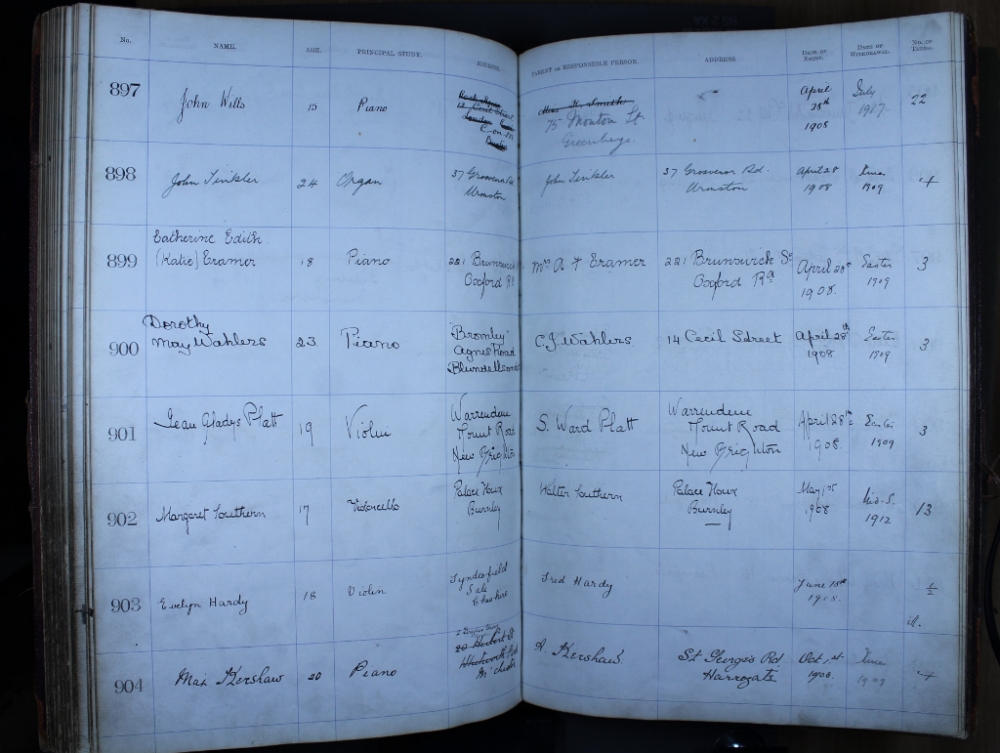 No. NAME. AGE. PRINCIPAL STUDY. ADDRESS. PARENT OR RESPONSIBLE PERSON. ADDRESS. DATE OF ENTRY. DATE OF WITHDRAWAL. NO. OF TERMS.
897 John Wills 15 Piano
Miss H. Smith
75 Monton St
Greenheys.
April
28th
1908
July
1917.
22
898 John Tinkler 24 Organ
37 Grosvenor Rd
Urmston
John Tinkler
37 Grosvenor Rd.
Urmston
April 28
1908
June
1909
4
Catherine Edith
899 (Katie) Cramer 18 Piano
221 Brunswick
Oxford Rd
Mrs A F Cramer
221 Brunswick St
Oxford Rd
April 28th
1908.
Easter
1909
3
Dorothy
900 May Wahlers 23 Piano
Bromley
Agnes Road
Blundellsands
C. J. Wahlers
14 Cecil Street
April 28th
1908
Easter
1909
3
901 Jean Gladys Platt 19 Violin
Warrendene
Mount Road
New Brighton
S. Ward Platt
Warrendene
Mount Road
New Brighton
April 28th
1908.
Easter
1909
3
902 Margaret Southern 17 Violoncello
Palace House
Burnley
Walter Southern
Palace House
Burnley
May 1st
1908
Mid-S.
1912
13
903 Evelyn Hardy 18 Violin
Sale
Cheshire
Fred Hardy
June 15th
1908.
½
ill.
904 Max Kershaw 20 Piano
20 Herbert St
Whitworth Park
M'chester
A Kershaw.
St George's Rd
Harrogate
Oct. 1st
1908.
June
1909
4